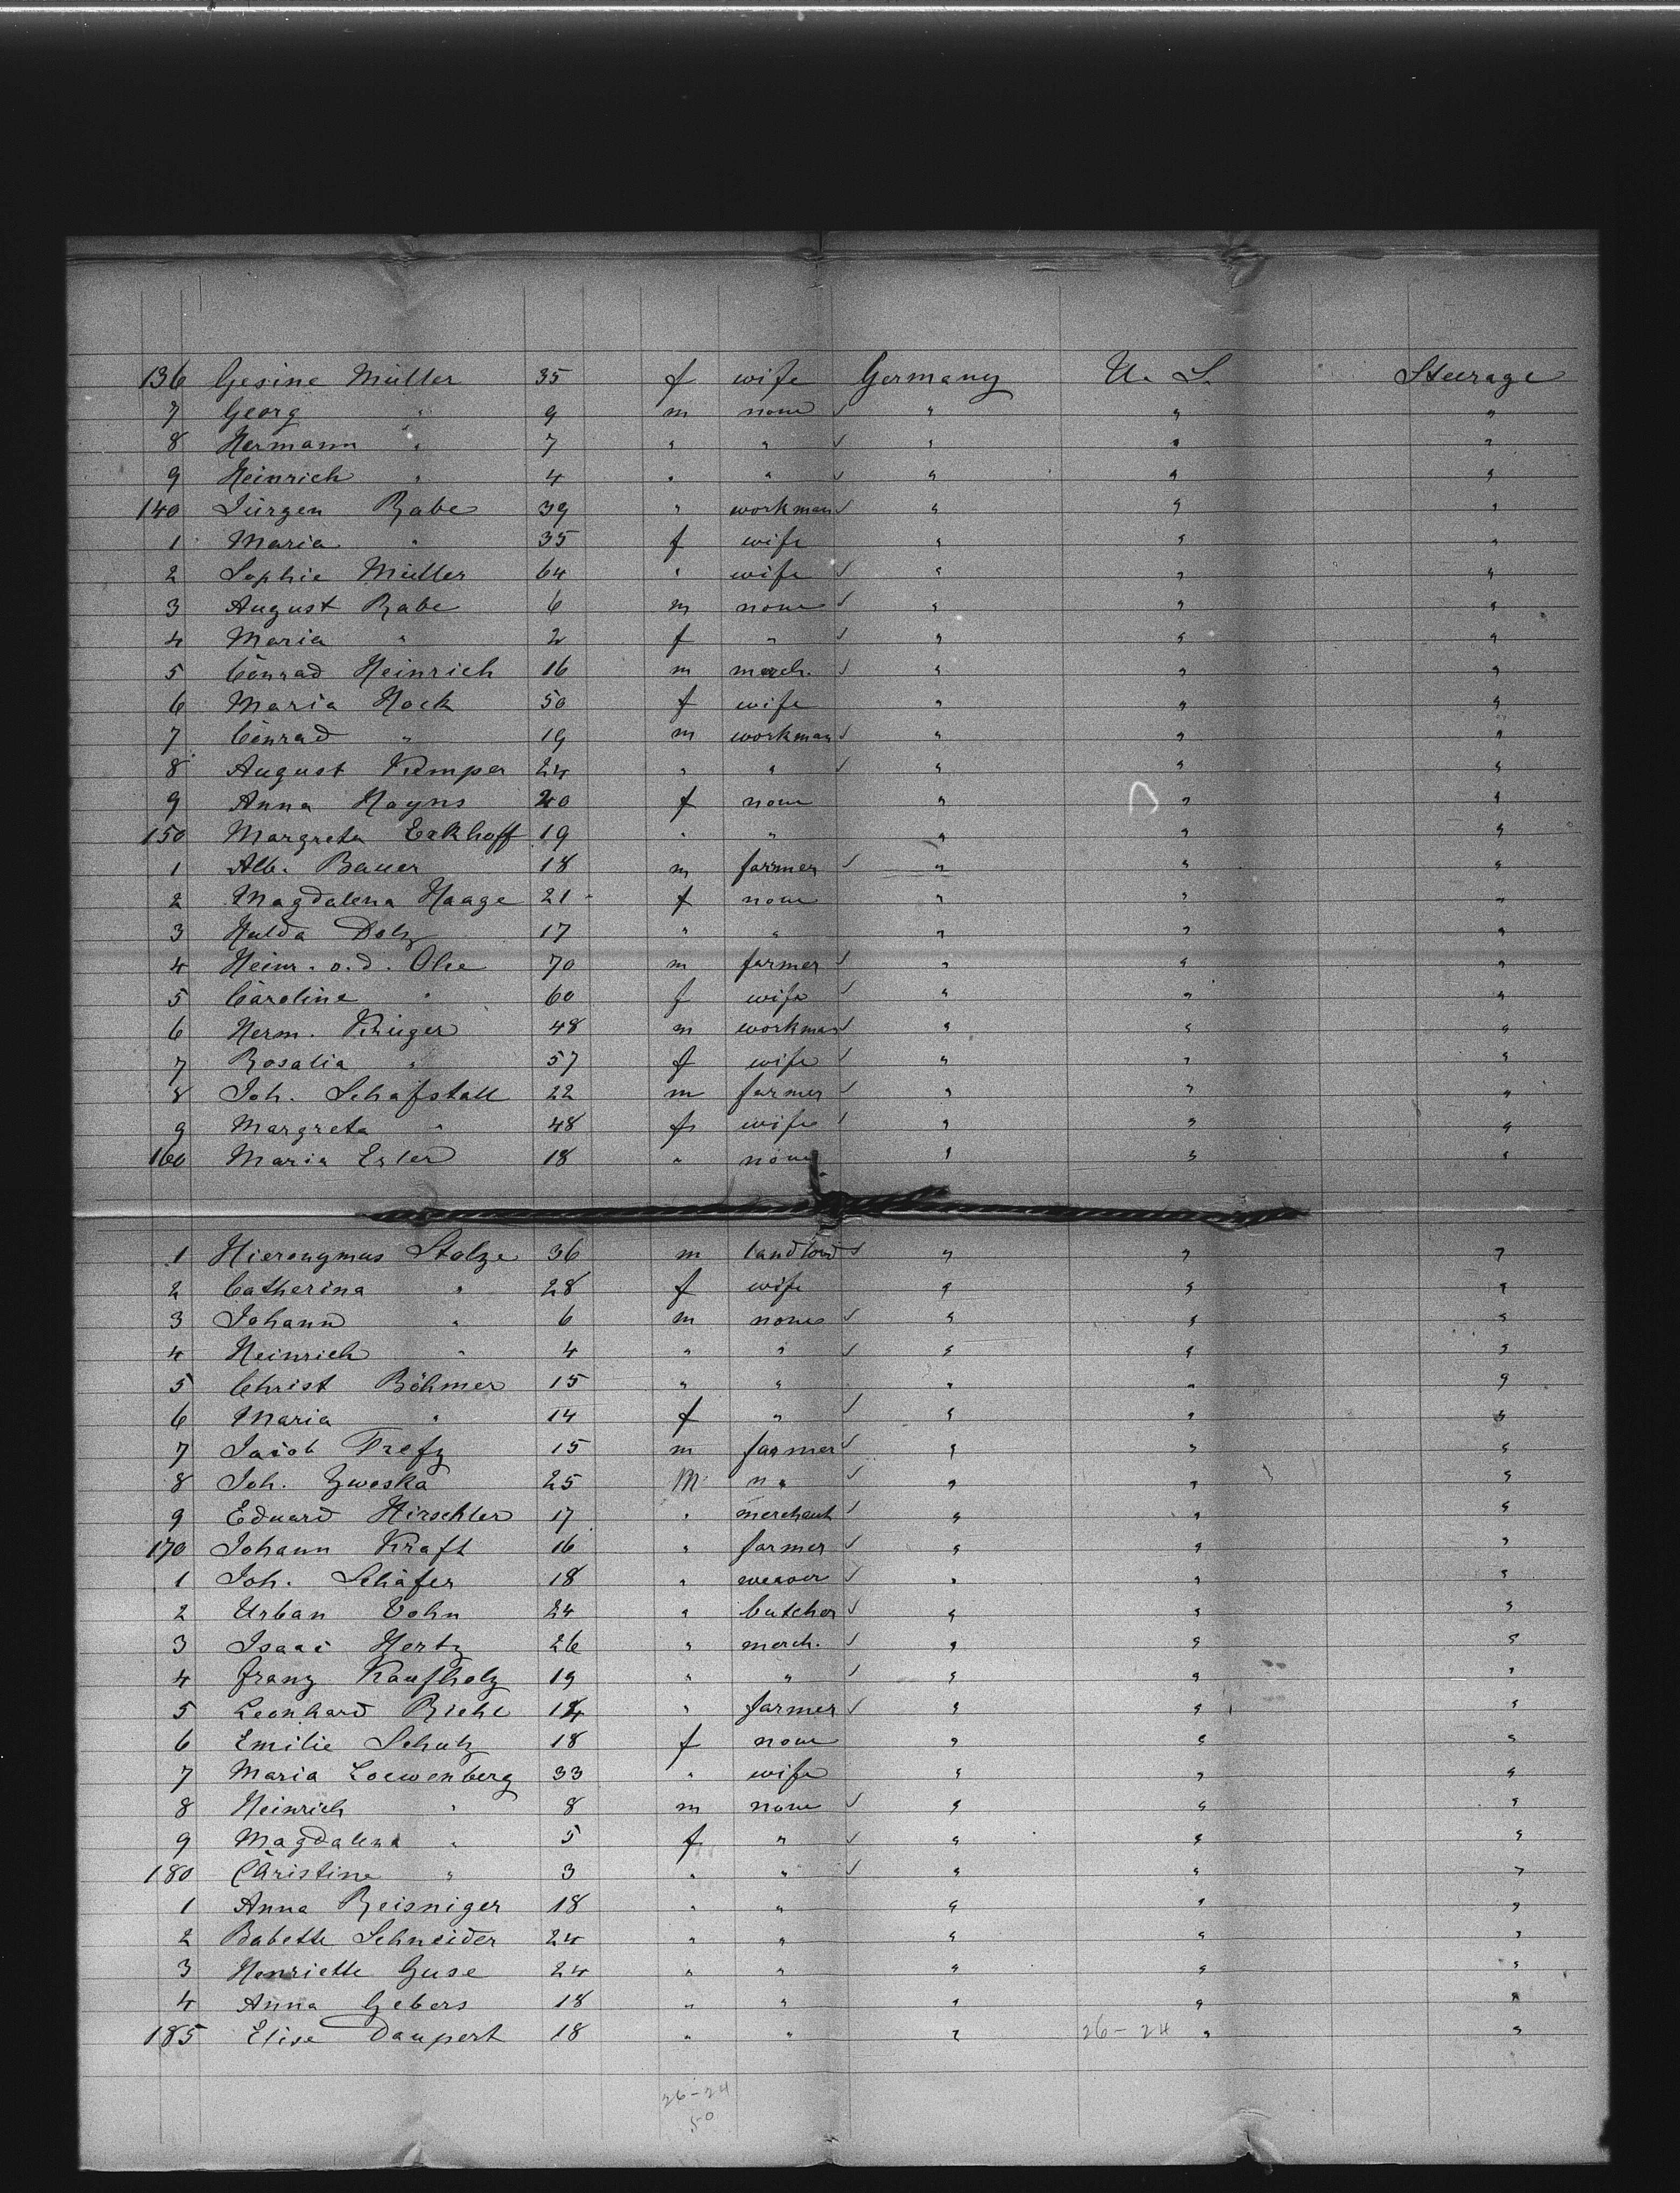 136 Gesine Müller 35 f wife Germany U. S. Steerage
7 Georg " 9 m none ✓ " " "
8 Hermann " 7 " " ✓ " " "
9 Heinrich " 4 " " ✓ " " "
140 Jürgen Rabe 39 " workman ✓ " " "
1 Maria " 35 f wife " " "
2 Sophie Müller 64 " wife ✓ " " "
3 August Rabe 6 m none ✓ " " "
4 Maria " 2 f " ✓ " " "
5 Conrad Heinrich 16 m merch. ✓ " " "
6 Maria Hock 50 f wife " " "
7 Conrad " 19 m workman ✓ " " "
8 August Kemper 24 " " ✓ " " "
9 Anna Hayns 20 f none " " "
150 Margreta Eckhoff 19 " " " " "
1 Alb. Bauer 18 m farmer ✓ " " "
2 Magdalena Haage 21 f none " " "
3 Hulda Dolz 17 " " " " "
4 Heinr. v. d. Ohe 70 m farmer ✓ " " "
5 Caroline " 60 f wife ✓ " " "
6 Herm. Krüger 48 m workman ✓ " " "
7 Rosalia " 57 f wife ✓ " " "
8 Joh. Schafstall 22 m farmer ✓ " " "
9 Margreta " 48 f wife ✓ " " "
160 Maria Exler 18 " none " " "
1 Hieronymus Stolze 36 m landlord ✓ " " "
2 Catherina " 28 f wife " " "
3 Johann " 6 m none ✓ " " "
4 Heinrich " 4 " " ✓ " " "
5 Christ Böhmer 15 " " " " "
6 Maria " 14 f " ✓ " " "
7 Jacob Trefz 15 m farmer ✓ " " "
8 Joh. Zwoska 25 M " ✓ " " "
9 Eduard Hirschler 17 " merchant ✓ " " "
170 Johann Kraft 16 " farmer ✓ " " "
1 Joh. Schäfer 18 " weaver ✓ " " "
2 Urban Vohn 24 " butcher ✓ " " "
3 Isaac Hertz 26 " merch. ✓ " " "
4 Franz Kaufholz 19 " " ✓ " " "
5 Leonhard Riehl 14 " farmer ✓ " " "
6 Emilie Schulz 18 f none " " "
7 Maria Loewenberg 33 " wife " " "
8 Heinrich " 8 m none ✓ " " "
9 Magdalena " 5 f " ✓ " " "
180 Christine " 3 " " ✓ " " "
1 Anna Reisniger 18 " " " " "
2 Babette Schneider 24 " " " " "
3 Henriette Guse 24 " " " " "
4 Anna Gebers 18 " " " " "
185 Elise Daupert 18 " " " 26-24 " "
26-24
50